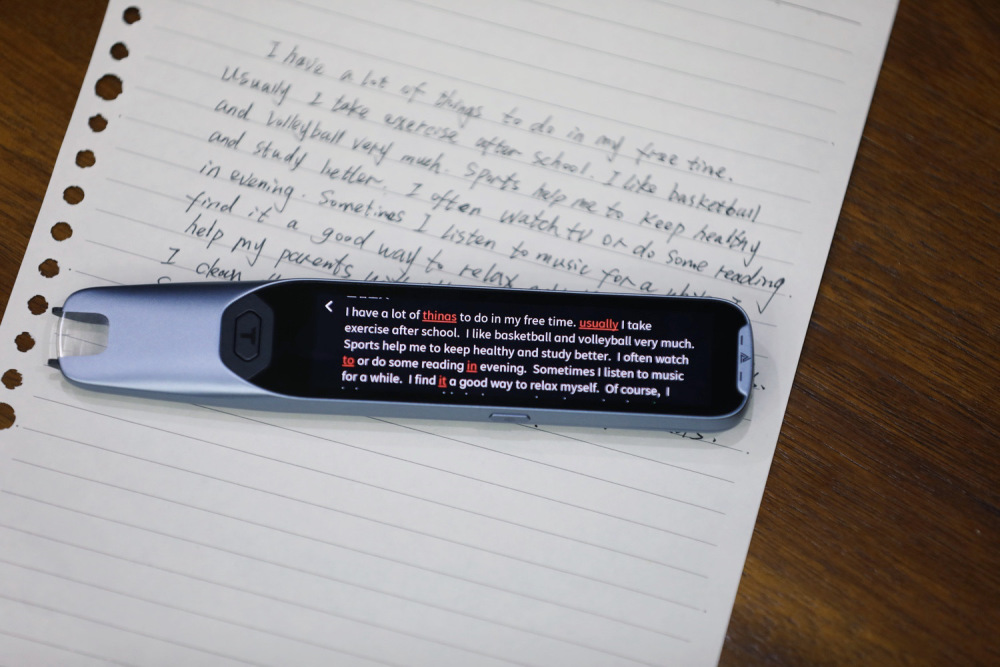 I have a lot of things to do in my free time.
Usually I take exercise after school. I like basketball
and volleyball very much. Sports help me to keep healthy
and study better. I often watch tv or do some reading
in evening. Sometimes I listen to music for a while I
find it a good way to relax
help my parents
I clean
T
I have a lot of things to do in my free time. usually I take
exercise after school. I like basketball and volleyball very much.
Sports help me to keep healthy and study better. I often watch
to or do some reading in evening. Sometimes I listen to music
for a while. I find it a good way to relax myself. Of course, I